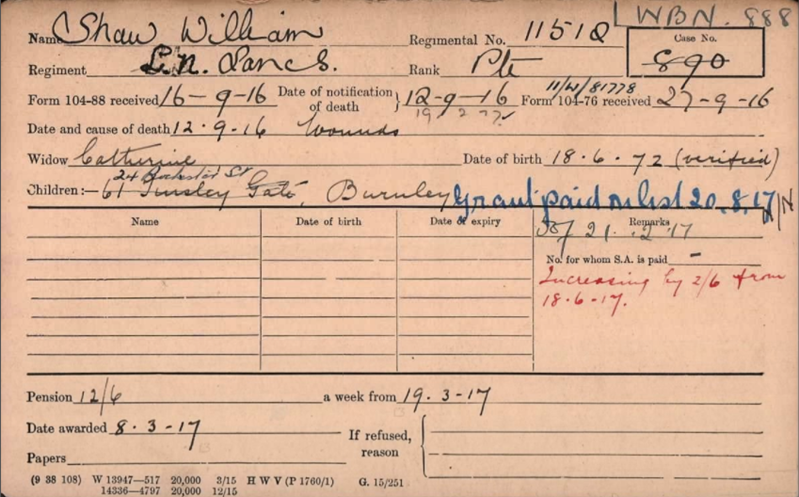 LWBN. 888
Name Shaw William Regimental No. 11518 Case No. 890
Regiment L.N. Lancs. Rank Pte
Form 104-88 received 16-9-16 Date of notification of death } 12-9-16 Form 104-76 received 27-9-16
11/W/81778
Date and cause of death 12.9.16 Wounds
Widow Catherine Date of birth 18.6.72 (verified)
24 Rochester St
Children:— 61 Tinsley Gate, Burnley Grant paid on list 20.8.17
Name Date of birth Date of expiry Remarks
21.2.17
No. for whom S.A. is paid -
Increasing by 2/6 from
18.6.17.
Pension 12/6 a week from 19.3-17
Date awarded 8.3-17 If refused, reason
Papers
(9 38 108) W 13947—517 20,000 3/15 H W V (P 1760/1) G. 15/251
14336—4797 20,000 12/15